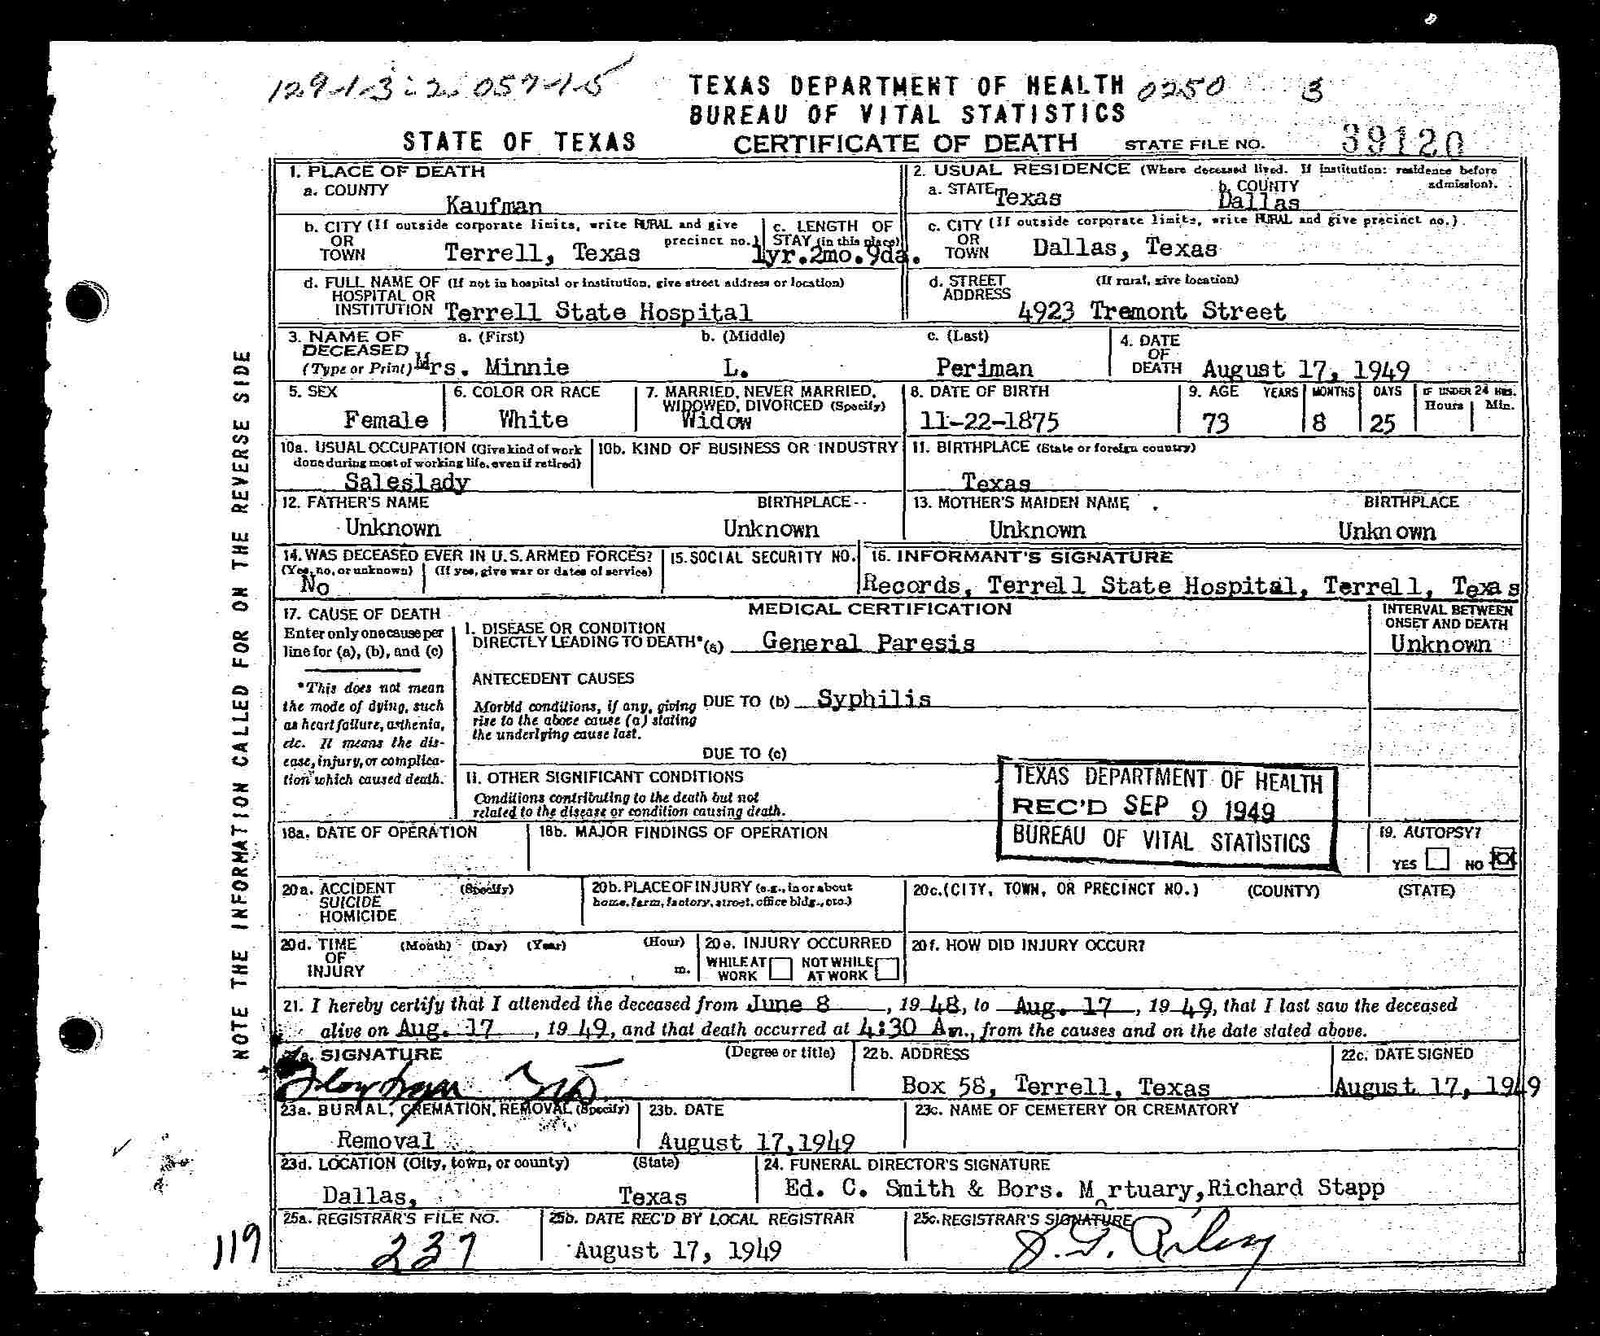 129-1-3-2 057-1-5
TEXAS DEPARTMENT OF HEALTH 0250 3
BUREAU OF VITAL STATISTICS
STATE OF TEXAS CERTIFICATE OF DEATH STATE FILE NO. 39120
1. PLACE OF DEATH
a. COUNTY
Kaufman
2. USUAL RESIDENCE (Where deceased lived. If institution: residence before admission).
a. STATE Texas b. COUNTY Dallas
b. CITY (If outside corporate limits, write RURAL and give precinct no.)
OR
TOWN Terrell, Texas
c. LENGTH OF
STAY (in this place)
1yr.2mo.9da.
c. CITY (If outside corporate limits, write RURAL and give precinct no.)
OR
TOWN Dallas, Texas
d. FULL NAME OF (If not in hospital or institution, give street address or location)
HOSPITAL OR
INSTITUTION Terrell State Hospital
d. STREET (If rural, give location)
ADDRESS
4923 Tremont Street
3. NAME OF a. (First) b. (Middle) c. (Last)
DECEASED
(Type or Print) Mrs. Minnie L. Periman
4. DATE
OF
DEATH August 17, 1949
5. SEX
Female
6. COLOR OR RACE
White
7. MARRIED, NEVER MARRIED,
WIDOWED, DIVORCED (Specify)
Widow
8. DATE OF BIRTH
11-22-1875
9. AGE YEARS MONTHS DAYS IF UNDER 24 HRS.
Hours Min.
73 8 25
10a. USUAL OCCUPATION (Give kind of work
done during most of working life, even if retired)
Saleslady
10b. KIND OF BUSINESS OR INDUSTRY
11. BIRTHPLACE (State or foreign country)
Texas
12. FATHER'S NAME BIRTHPLACE
Unknown Unknown
13. MOTHER'S MAIDEN NAME BIRTHPLACE
Unknown Unknown
14. WAS DECEASED EVER IN U.S. ARMED FORCES?
(Yes, no, or unknown) (If yes, give war or dates of service)
No
15. SOCIAL SECURITY NO.
16. INFORMANT'S SIGNATURE
Records, Terrell State Hospital, Terrell, Texas
17. CAUSE OF DEATH
Enter only one cause per
line for (a), (b), and (c)
*This does not mean
the mode of dying, such
as heart failure, asthenia,
etc. It means the dis-
ease, injury, or complica-
tion which caused death.
MEDICAL CERTIFICATION
INTERVAL BETWEEN
ONSET AND DEATH
I. DISEASE OR CONDITION
DIRECTLY LEADING TO DEATH*(a) General Paresis Unknown
ANTECEDENT CAUSES
Morbid conditions, if any, giving
rise to the above cause (a) stating
the underlying cause last.
DUE TO (b) Syphilis
DUE TO (c)
II. OTHER SIGNIFICANT CONDITIONS
Conditions contributing to the death but not
related to the disease or condition causing death.
TEXAS DEPARTMENT OF HEALTH
REC'D SEP 9 1949
BUREAU OF VITAL STATISTICS
18a. DATE OF OPERATION
18b. MAJOR FINDINGS OF OPERATION
19. AUTOPSY?
YES NO X
20a. ACCIDENT (Specify)
SUICIDE
HOMICIDE
20b. PLACE OF INJURY (e.g., in or about
home, farm, factory, street, office bldg., etc.)
20c. (CITY, TOWN, OR PRECINCT NO.) (COUNTY) (STATE)
20d. TIME (Month) (Day) (Year) (Hour)
OF
INJURY m.
20e. INJURY OCCURRED
WHILE AT WORK NOT WHILE AT WORK
20f. HOW DID INJURY OCCUR?
21. I hereby certify that I attended the deceased from June 8, 1948, to Aug. 17, 1949, that I last saw the deceased
alive on Aug. 17, 1949, and that death occurred at 4:30 Am., from the causes and on the date stated above.
SIGNATURE (Degree or title)
22b. ADDRESS
Box 58, Terrell, Texas
22c. DATE SIGNED
August 17, 1949
23a. BURIAL, CREMATION, REMOVAL (Specify)
Removal
23b. DATE
August 17, 1949
23c. NAME OF CEMETERY OR CREMATORY
23d. LOCATION (City, town, or county) (State)
Dallas, Texas
24. FUNERAL DIRECTOR'S SIGNATURE
Ed. C. Smith & Bors. Mortuary, Richard Stapp
25a. REGISTRAR'S FILE NO.
237
25b. DATE REC'D BY LOCAL REGISTRAR
August 17, 1949
25c. REGISTRAR'S SIGNATURE
119
NOTE THE INFORMATION CALLED FOR ON THE REVERSE SIDE